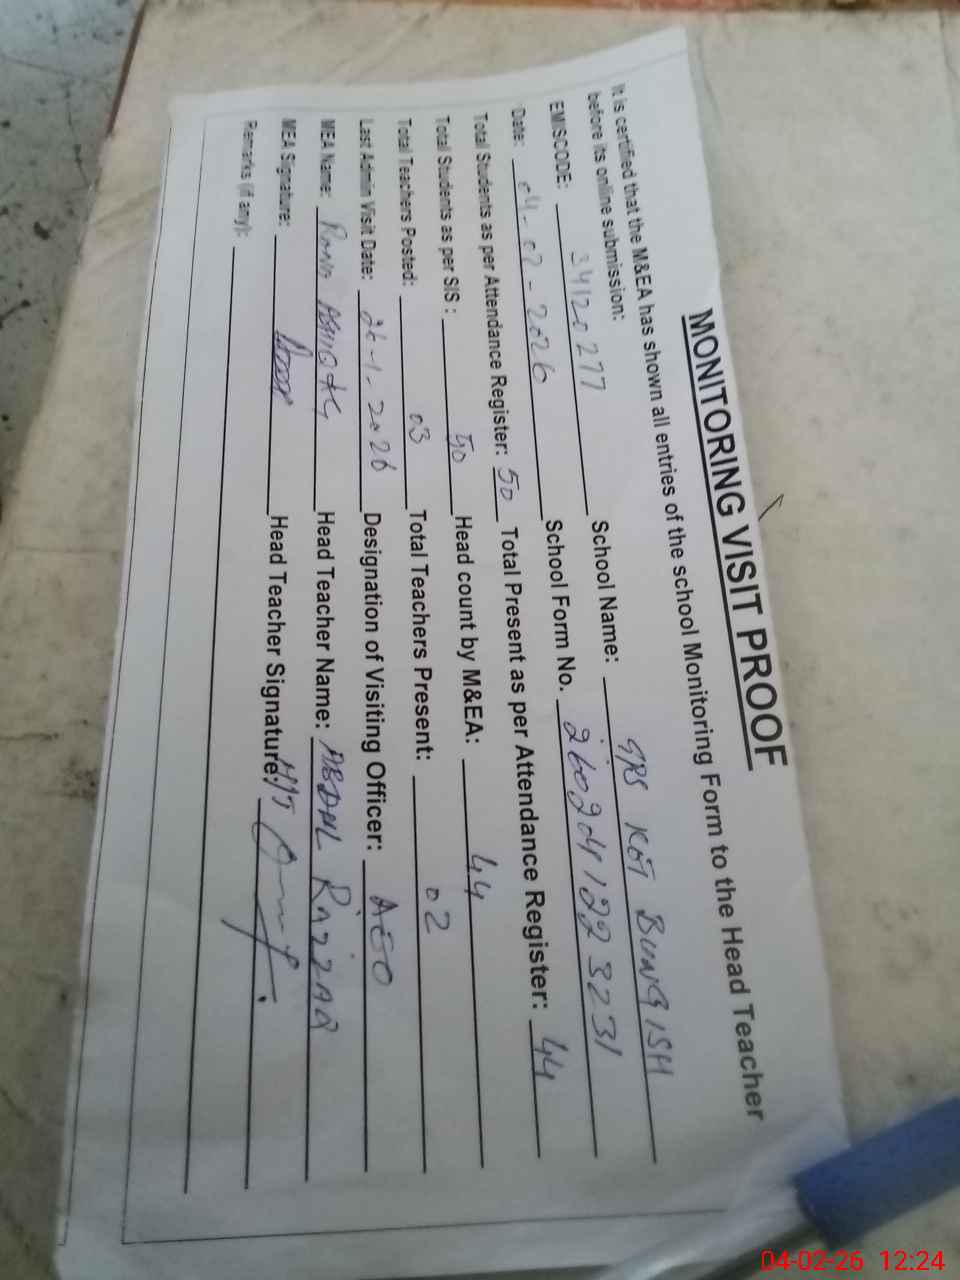 MONITORING VISIT PROOF
It is certified that the M&EA has shown all entries of the school Monitoring Form to the Head Teacher
before its online submission:
EMISCODE: 34120277 School Name: GPS KOT BUNGISH
Date: 04-02-2026 School Form No. 2602041223231
Total Students as per Attendance Register: 50 Total Present as per Attendance Register: 44
Total Students as per SIS: 50 Head count by M&EA: 44
Total Teachers Posted: 03 Total Teachers Present: 02
Last Admin Visit Date: 26-1-2026 Designation of Visiting Officer: AEO
MEA Name: Rana Head Teacher Name: ABDUL RAZZAQ
MEA Signature: Head Teacher Signature:
Remarks (if any):
04-02-26 12:24